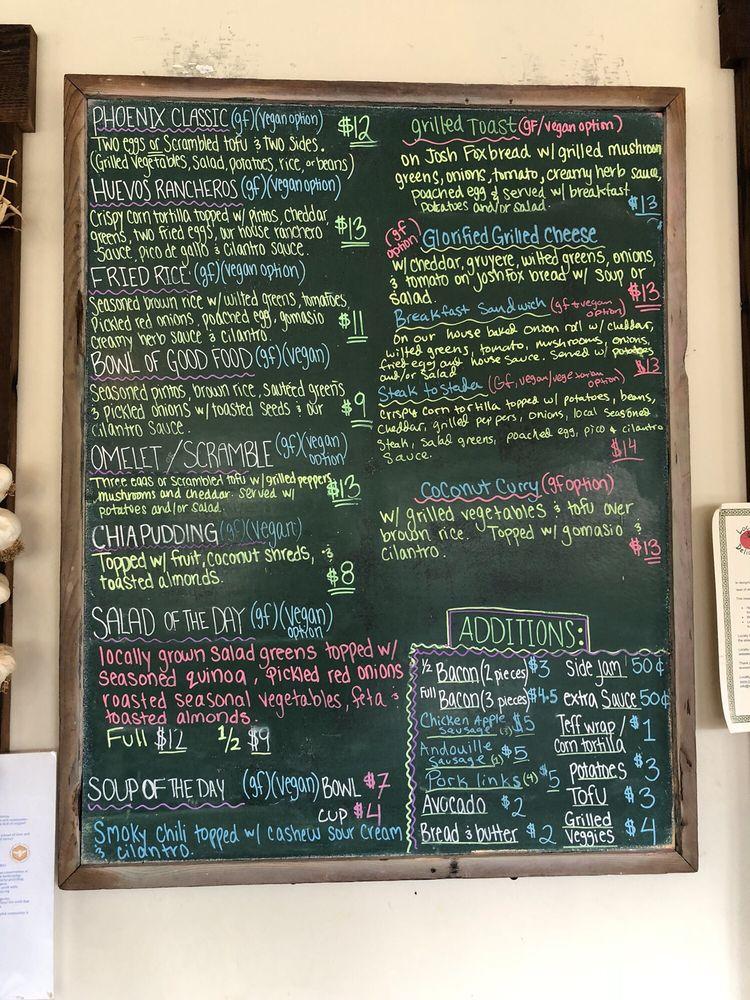 PHOENIX CLASSIC (gf)(vegan option)
Two eggs or Scrambled tofu & Two Sides. $12
(Grilled Vegetables, Salad, potatoes, rice, or beans)
HUEVOS RANCHEROS (gf)(vegan option)
Crispy corn tortilla topped w/ pintos, cheddar
greens, two fried eggs, our house ranchero $13
Sauce, pico de gallo & cilantro sauce.
FRIED RICE (gf)(vegan option)
Seasoned brown rice w/ wilted greens, tomatoes,
Pickled red onions, poached egg, gomasio $11
creamy herb sauce & cilantro.
BOWL OF GOOD FOOD (gf)(vegan)
Seasoned pintos, brown rice, sautéed greens
& pickled onions w/ toasted seeds & our $9
Cilantro Sauce.
OMELET/SCRAMBLE (gf)(vegan option)
Three eggs or scrambled tofu w/ grilled peppers,
mushrooms and cheddar. Served w/ $13
potatoes and/or Salad.
CHIA PUDDING (gf)(vegan)
Topped w/ fruit, coconut shreds, &
toasted almonds. $8
SALAD OF THE DAY (gf)(vegan option)
locally grown salad greens topped w/
seasoned quinoa, pickled red onions
roasted seasonal vegetables, feta &
toasted almonds.
Full $12 1/2 $9
SOUP OF THE DAY (gf)(vegan) BOWL $7
CUP $4
Smoky chili topped w/ cashew sour cream
& cilantro.
grilled Toast (gf/vegan option)
on Josh Fox bread w/ grilled mushroom
greens, onions, tomato, creamy herb sauce,
poached egg & served w/ breakfast
potatoes and/or salad. $13
(gf option) Glorified Grilled Cheese
w/ cheddar, gruyere, wilted greens, onions,
& tomato on Josh Fox bread w/ Soup or
Salad. $13
Breakfast Sandwich (gf & vegan option)
On our house baked onion roll w/ cheddar,
wilted greens, tomato, mushrooms, onions,
fried egg and house sauce. Served w/ potatoes
and/or salad $13
Steak tostada (gf, vegan/vegetarian option)
Crispy corn tortilla topped w/ potatoes, beans,
Cheddar, grilled peppers, onions, local seasoned
Steak, Salad greens, poached egg, pico & cilantro
Sauce. $14
Coconut Curry (gf option)
w/ grilled vegetables & tofu over
brown rice. Topped w/ gomasio &
cilantro. $13
ADDITIONS:
1/2 Bacon (2 pieces) $3
Full Bacon (3 pieces) $4.5
Chicken Apple Sausage (3) $5
Andouille Sausage (1) $5
Pork links (4) $5
Avocado $2
Bread & butter $2
Side jam 50¢
extra Sauce 50¢
Teff wrap/
corn tortilla $1
Potatoes $3
Tofu $3
Grilled
Veggies $4